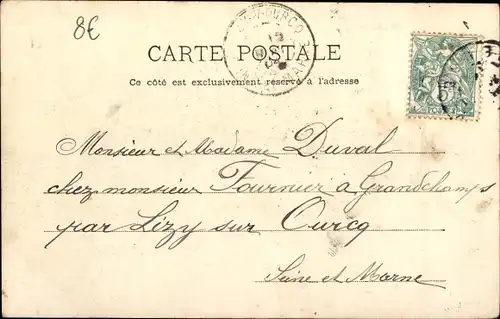 8€
CARTE POSTALE
Ce côté est exclusivement réservé à l'adresse
5
Monsieur et Madame Duval
chez monsieur Fournier à Grandchamps
par Lizy sur Ourcq
Seine et Marne